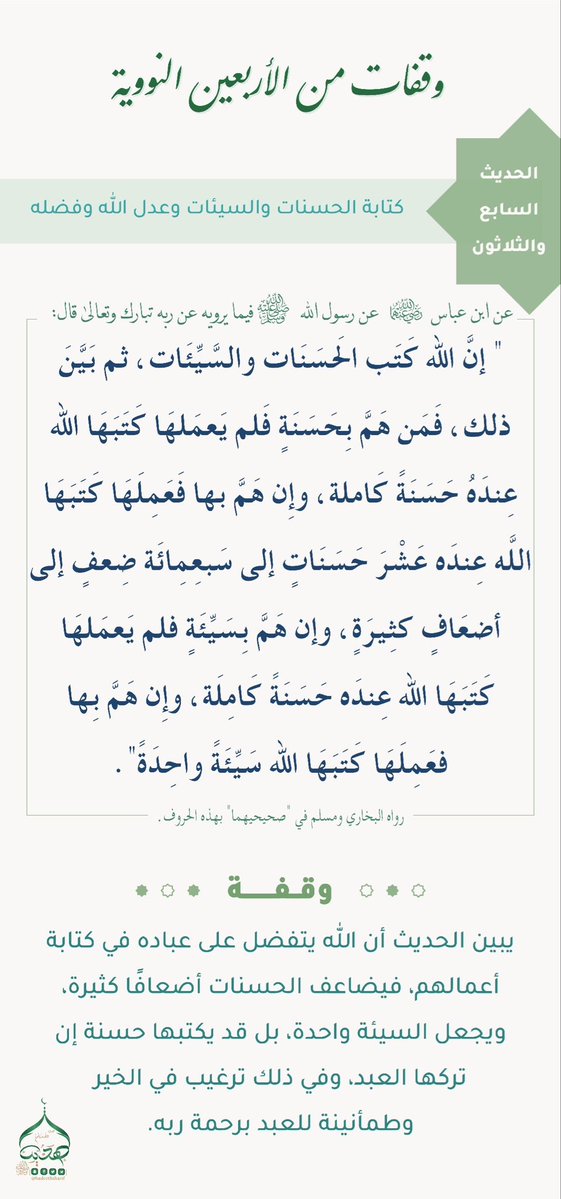 وقفات من الأربعين النووية
الحديث
السابع
والثلاثون
كتابة الحسنات والسيئات وعدل الله وفضله
عن ابن عباس رضي الله عنهما عن رسول الله ﷺ فيما يرويه عن ربه تبارك وتعالىٰ قال:
" إنَّ الله كَتَب الحَسَنَات والسَّيِّئَات، ثم بَيَّنَ
ذلك، فَمَن هَمَّ بِحَسَنَةٍ فَلم يَعمَلهَا كَتَبَهَا الله
عِندَهُ حَسَنَةً كَاملة، وإِن هَمَّ بها فَعَمِلَهَا كَتَبَهَا
اللَّه عِندَه عَشْرَ حَسَنَاتٍ إلى سَبعِمِائَة ضِعفٍ إلى
أضعَافٍ كثِيرَةٍ، وإن هَمَّ بِسَيِّئَةٍ فلم يَعمَلهَا
كَتَبَهَا الله عِندَه حَسَنَةً كَامِلَة، وإِن هَمَّ بِها
فعَمِلَهَا كَتَبَهَا الله سَيِّئَةً واحِدَةً".
رواه البخاري ومسلم في "صحيحيهما" بهذه الحروف.
وقفة
يبين الحديث أن الله يتفضل على عباده في كتابة
أعمالهم، فيضاعف الحسنات أضعافًا كثيرة،
ويجعل السيئة واحدة، بل قد يكتبها حسنة إن
تركها العبد، وفي ذلك ترغيب في الخير
وطمأنينة للعبد برحمة ربه.